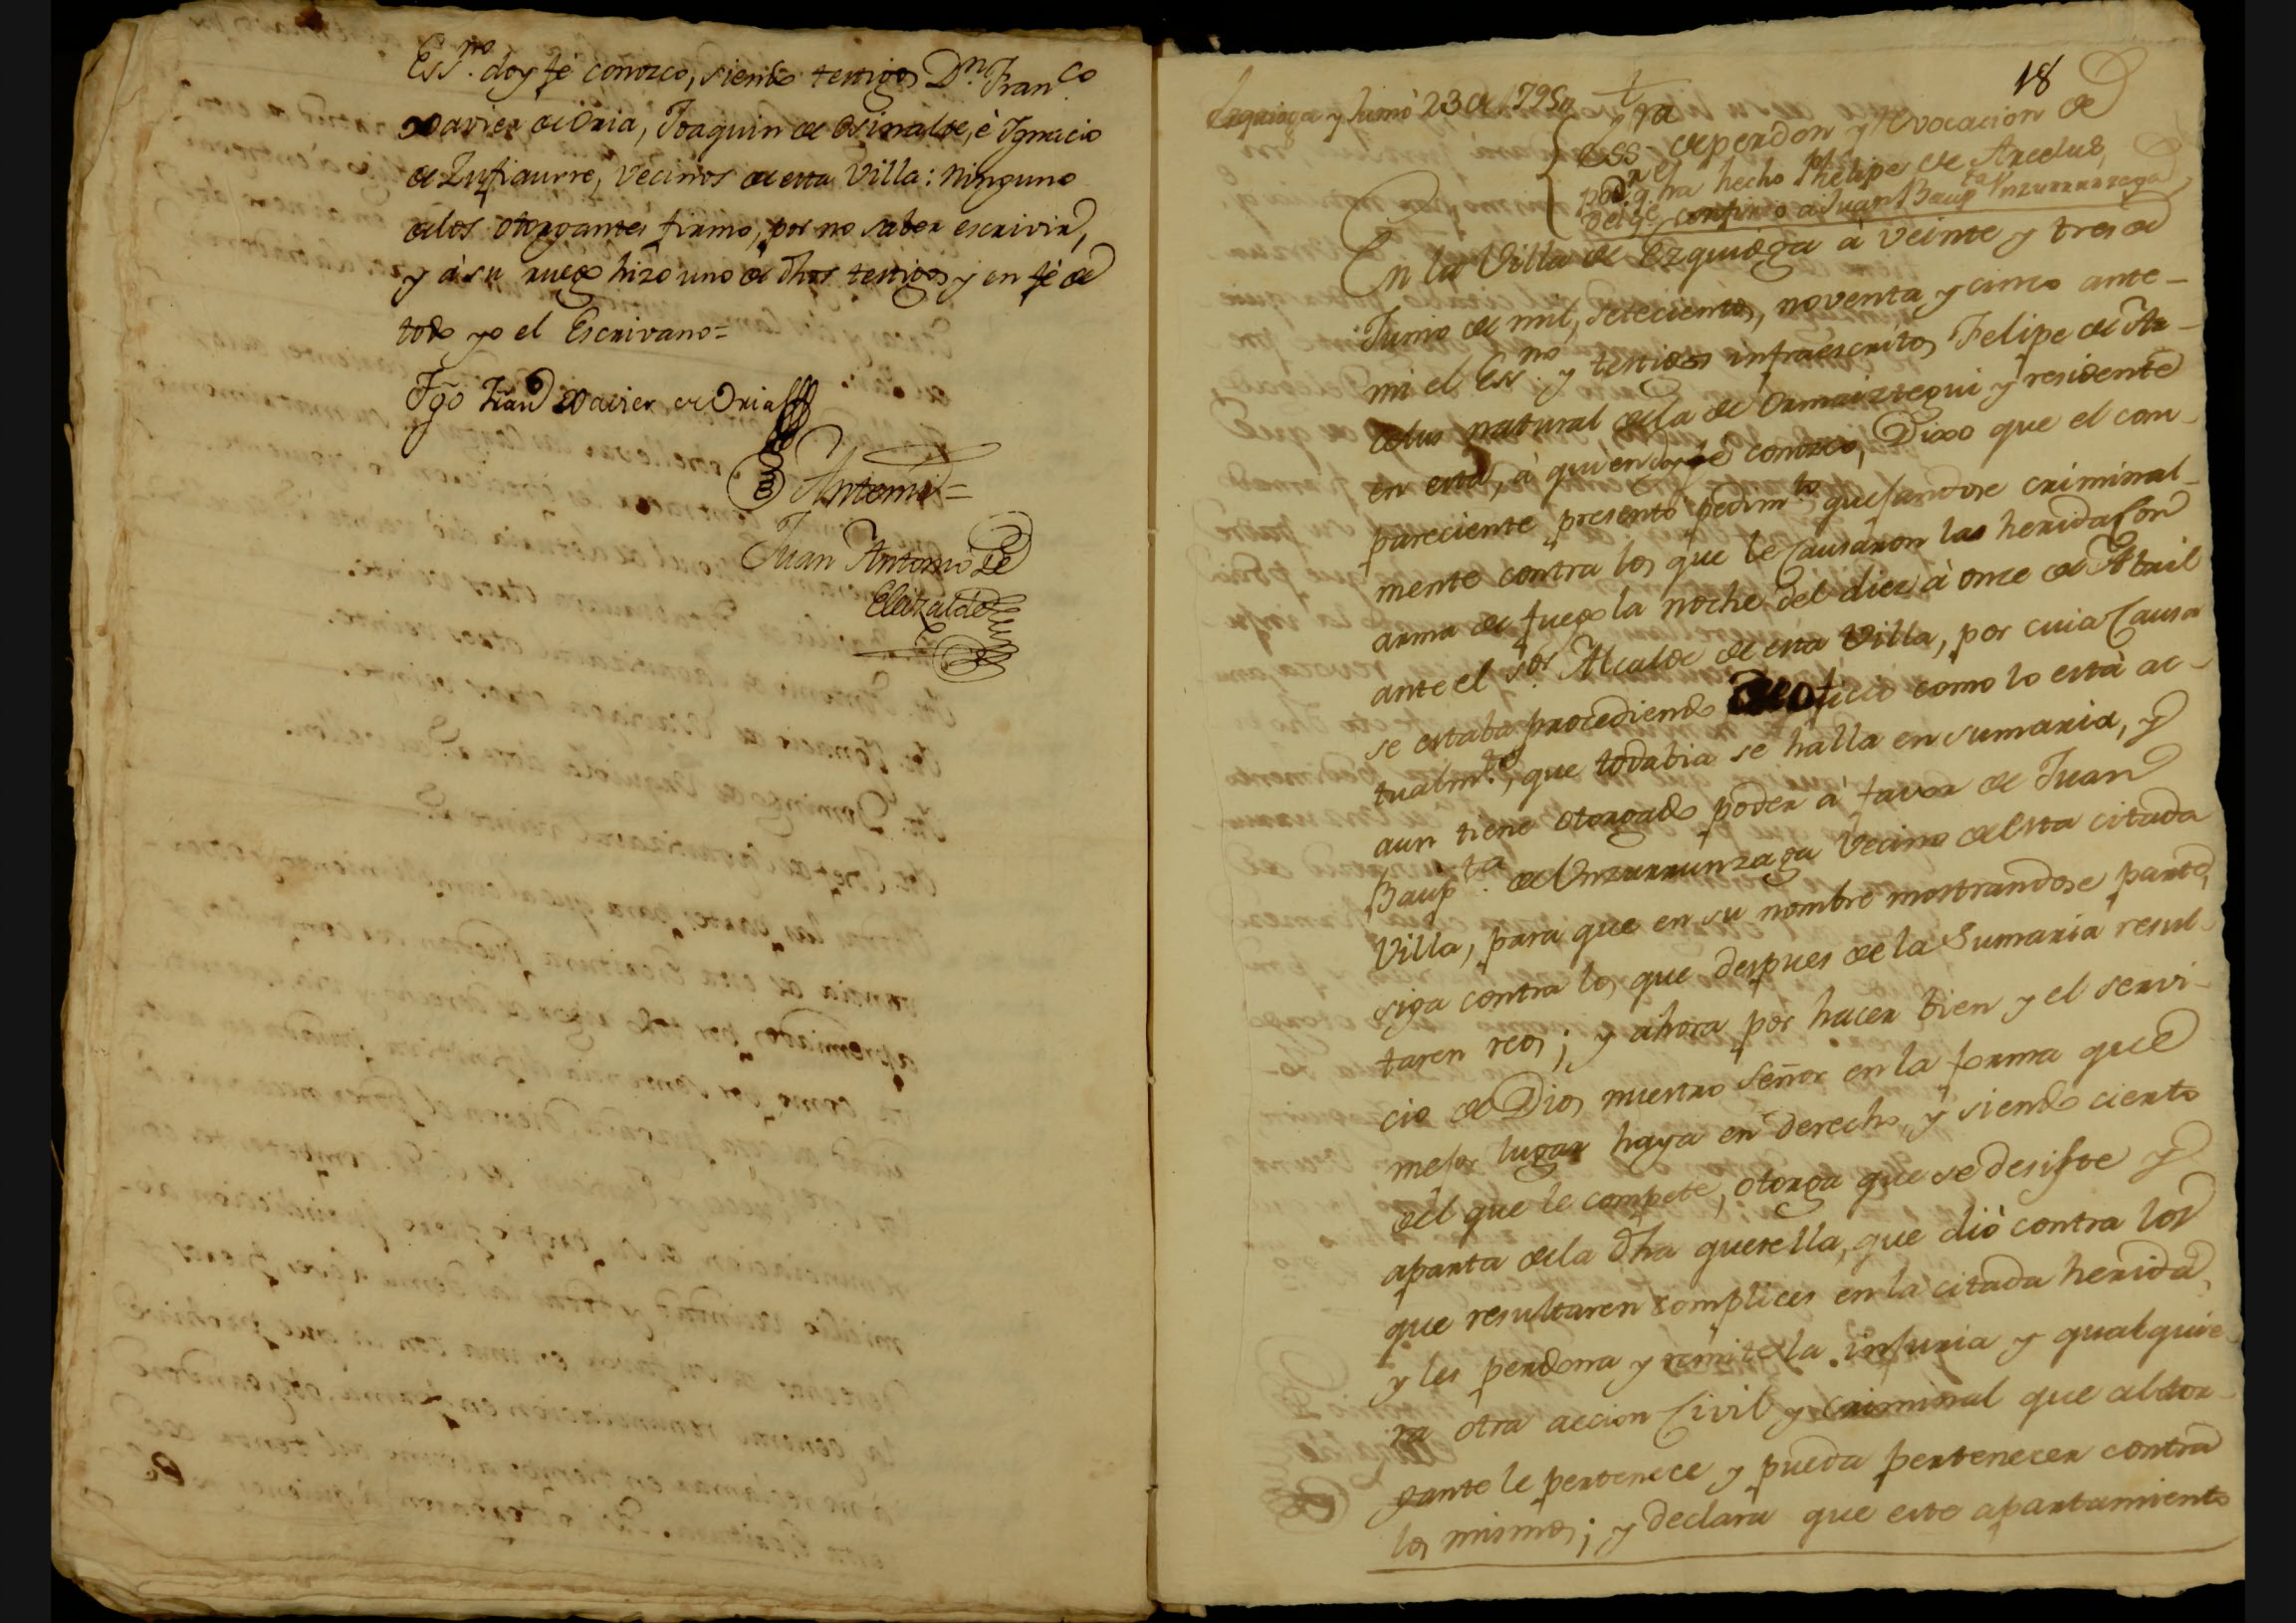 Ess.no doy fé conozco, siendo testigos Dn. Fran.co
Xavier de Oria, Joaquin de Osinalde, è Ygnacio
de Zufiaurre, Vecinos de esta Villa: Ninguno
de los otorgantes firmó, por no saber escrivir,
y á su ruego hizo uno de dhos testigos, y en fé de
todo yo el Escrivano=
Fran.co Xavier de Oria
Antemi=
Juan Antonio de
Elizalde
18
Ezquioga y Junio 23 de 1795
Ess.ra de perdon y revocacion de
pod.r q.e ha hecho Phelipe de Arcelus,
del q.e confirio a Juan Baup.ta Unzurrunzaga
En la Villa de Ezquioga à veinte y tres de
Junio de mil, setecientos, noventa y cinco ante-
mi el Ess.no y testigos infraescritos Felipe de Ar-
celus natural de la de Ormaiztegui y residente
en esta, à quien doy fé conozco, Dixo que el com-
pareciente presentó pedim.to quejandose criminal-
mente contra los que le causaron las heridas con
arma de fuego la noche del diez à once de Abril
ante el s.or Alcalde de esta Villa, por cuia Causa
se estaba procediendo de oficio como lo està ac-
tualm.te, que todabia se halla en sumaria, y
aun tiene otorgado poder à favor de Juan
Baup.ta de Unzurrunzaga Vecino de esta citada
Villa, para que en su nombre mostrandose parte,
siga contra los que despues de la Sumaria resul-
taren reos; y ahora por hacer bien y el servi-
cio de Dios nuestro Señor en la forma que
mejor lugar haya en derecho, y siendo cierto
del que le compete, otorga que se desiste y
aparta de la dha querella, que diò contra los
que resultaren complices en la citada herida,
y les perdona y remite la injuria y qualquie-
ra otra accion Civil y Criminal que al otor-
gante le pertenece y pueda pertenecer contra
los mismos; y declara que este apartamiento